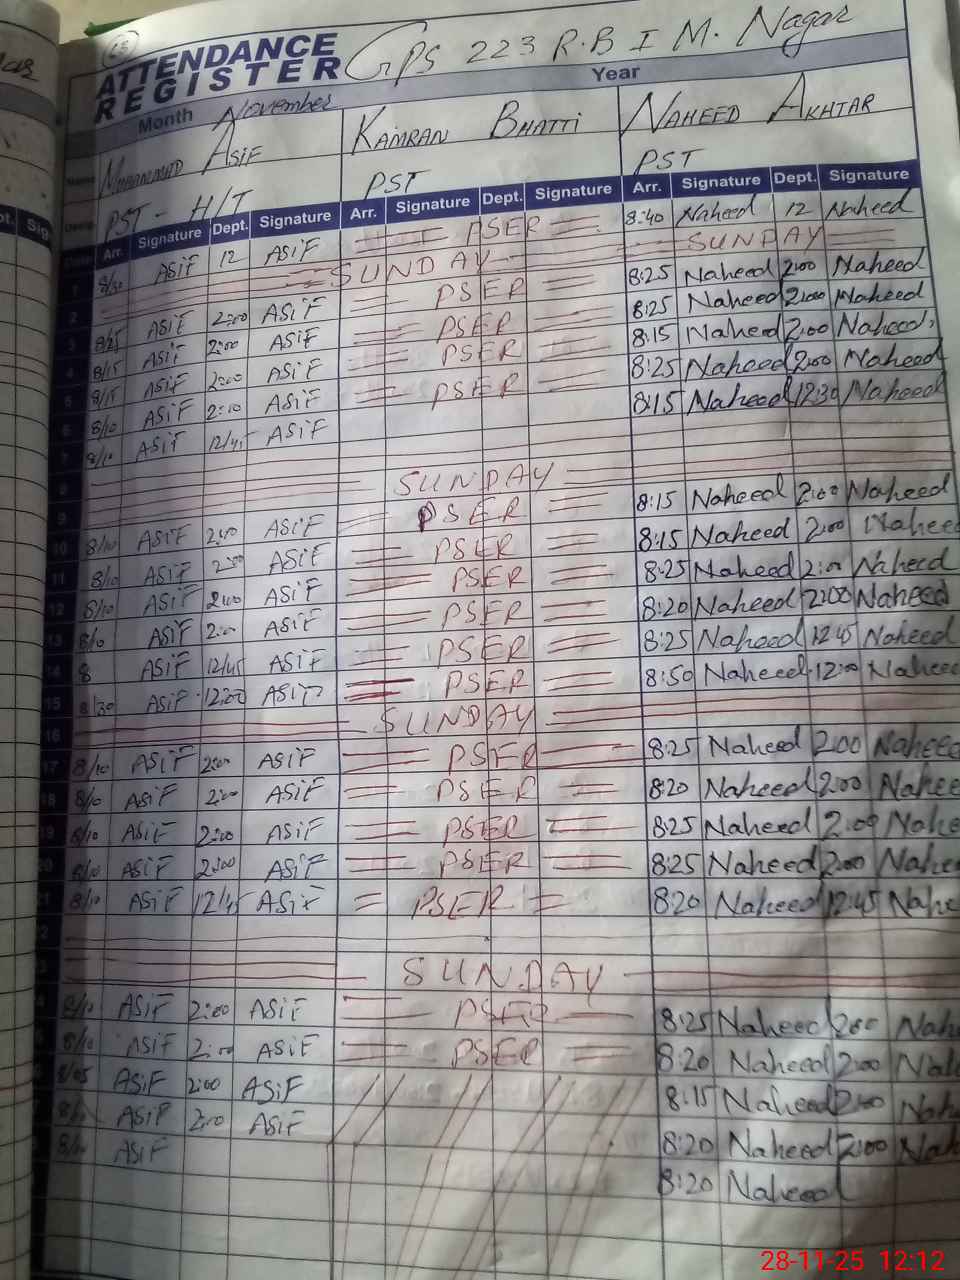 ATTENDANCE REGISTER GPS 223 R.B I M. Nagar
Month November Year
Name MUHAMMAD ASiF KAMRAN BHATTi NAHEED AKHTAR
PST - H/T PST PST
Arr. Signature Dept. Signature Arr. Signature Dept. Signature Arr. Signature Dept. Signature
1 8/30 ASiF 12 ASiF PSER 8:40 Naheed 12 Naheed
2 SUNDAY SUNDAY
3 8/25 ASiF 2:00 ASiF PSER 8:25 Naheed 2:00 Naheed
4 8/15 ASiF 2:00 ASiF PSER 8:25 Naheed 2:00 Naheed
5 8/15 ASiF 2:00 ASiF PSER 8:15 Naheed 2:00 Naheed
6 8/10 ASiF 2:10 ASiF PSER 8:25 Naheed 2:00 Naheed
7 8/10 ASiF 12/45 ASiF 8:15 Naheed 12:30 Naheed
8
9 SUNDAY
10 8/10 ASiF 2:00 ASiF PSER 8:15 Naheed 2:00 Naheed
11 8/10 ASiF 2:00 ASiF PSER 8:15 Naheed 2:00 Naheed
12 8/10 ASiF 2:00 ASiF PSER 8:25 Naheed 2:00 Naheed
13 8/10 ASiF 2:00 ASiF PSER 8:20 Naheed 2:00 Naheed
14 8 ASiF 12/45 ASiF PSER 8:25 Naheed 12:45 Naheed
15 8/30 ASiF 12:00 ASiF PSER 8:50 Naheed 12:00 Naheed
16 SUNDAY
17 8/10 ASiF 2:00 ASiF PSER 8:25 Naheed 2:00 Naheed
18 8/10 ASiF 2:00 ASiF PSER 8:20 Naheed 2:00 Nahee
19 8/10 ASiF 2:00 ASiF PSER 8:25 Naheed 2:00 Nahe
20 8/10 ASiF 2:00 ASiF PSER 8:25 Naheed 2:00 Nahe
21 8/10 ASiF 12/45 ASiF PSER 8:20 Naheed 12:45 Nahe
SUNDAY
8/10 ASiF 2:00 ASiF PSER 8:25 Naheed 2:00 Nah
8/10 ASiF 2:00 ASiF PSER 8:20 Naheed 2:00 Nah
8/05 ASiF 2:00 ASiF 8:15 Naheed 2:00 Nah
8/10 ASiF 2:00 ASiF 8:20 Naheed 2:00 Nah
8/10 ASiF 8:20 Naheed
28-11-25 12:12